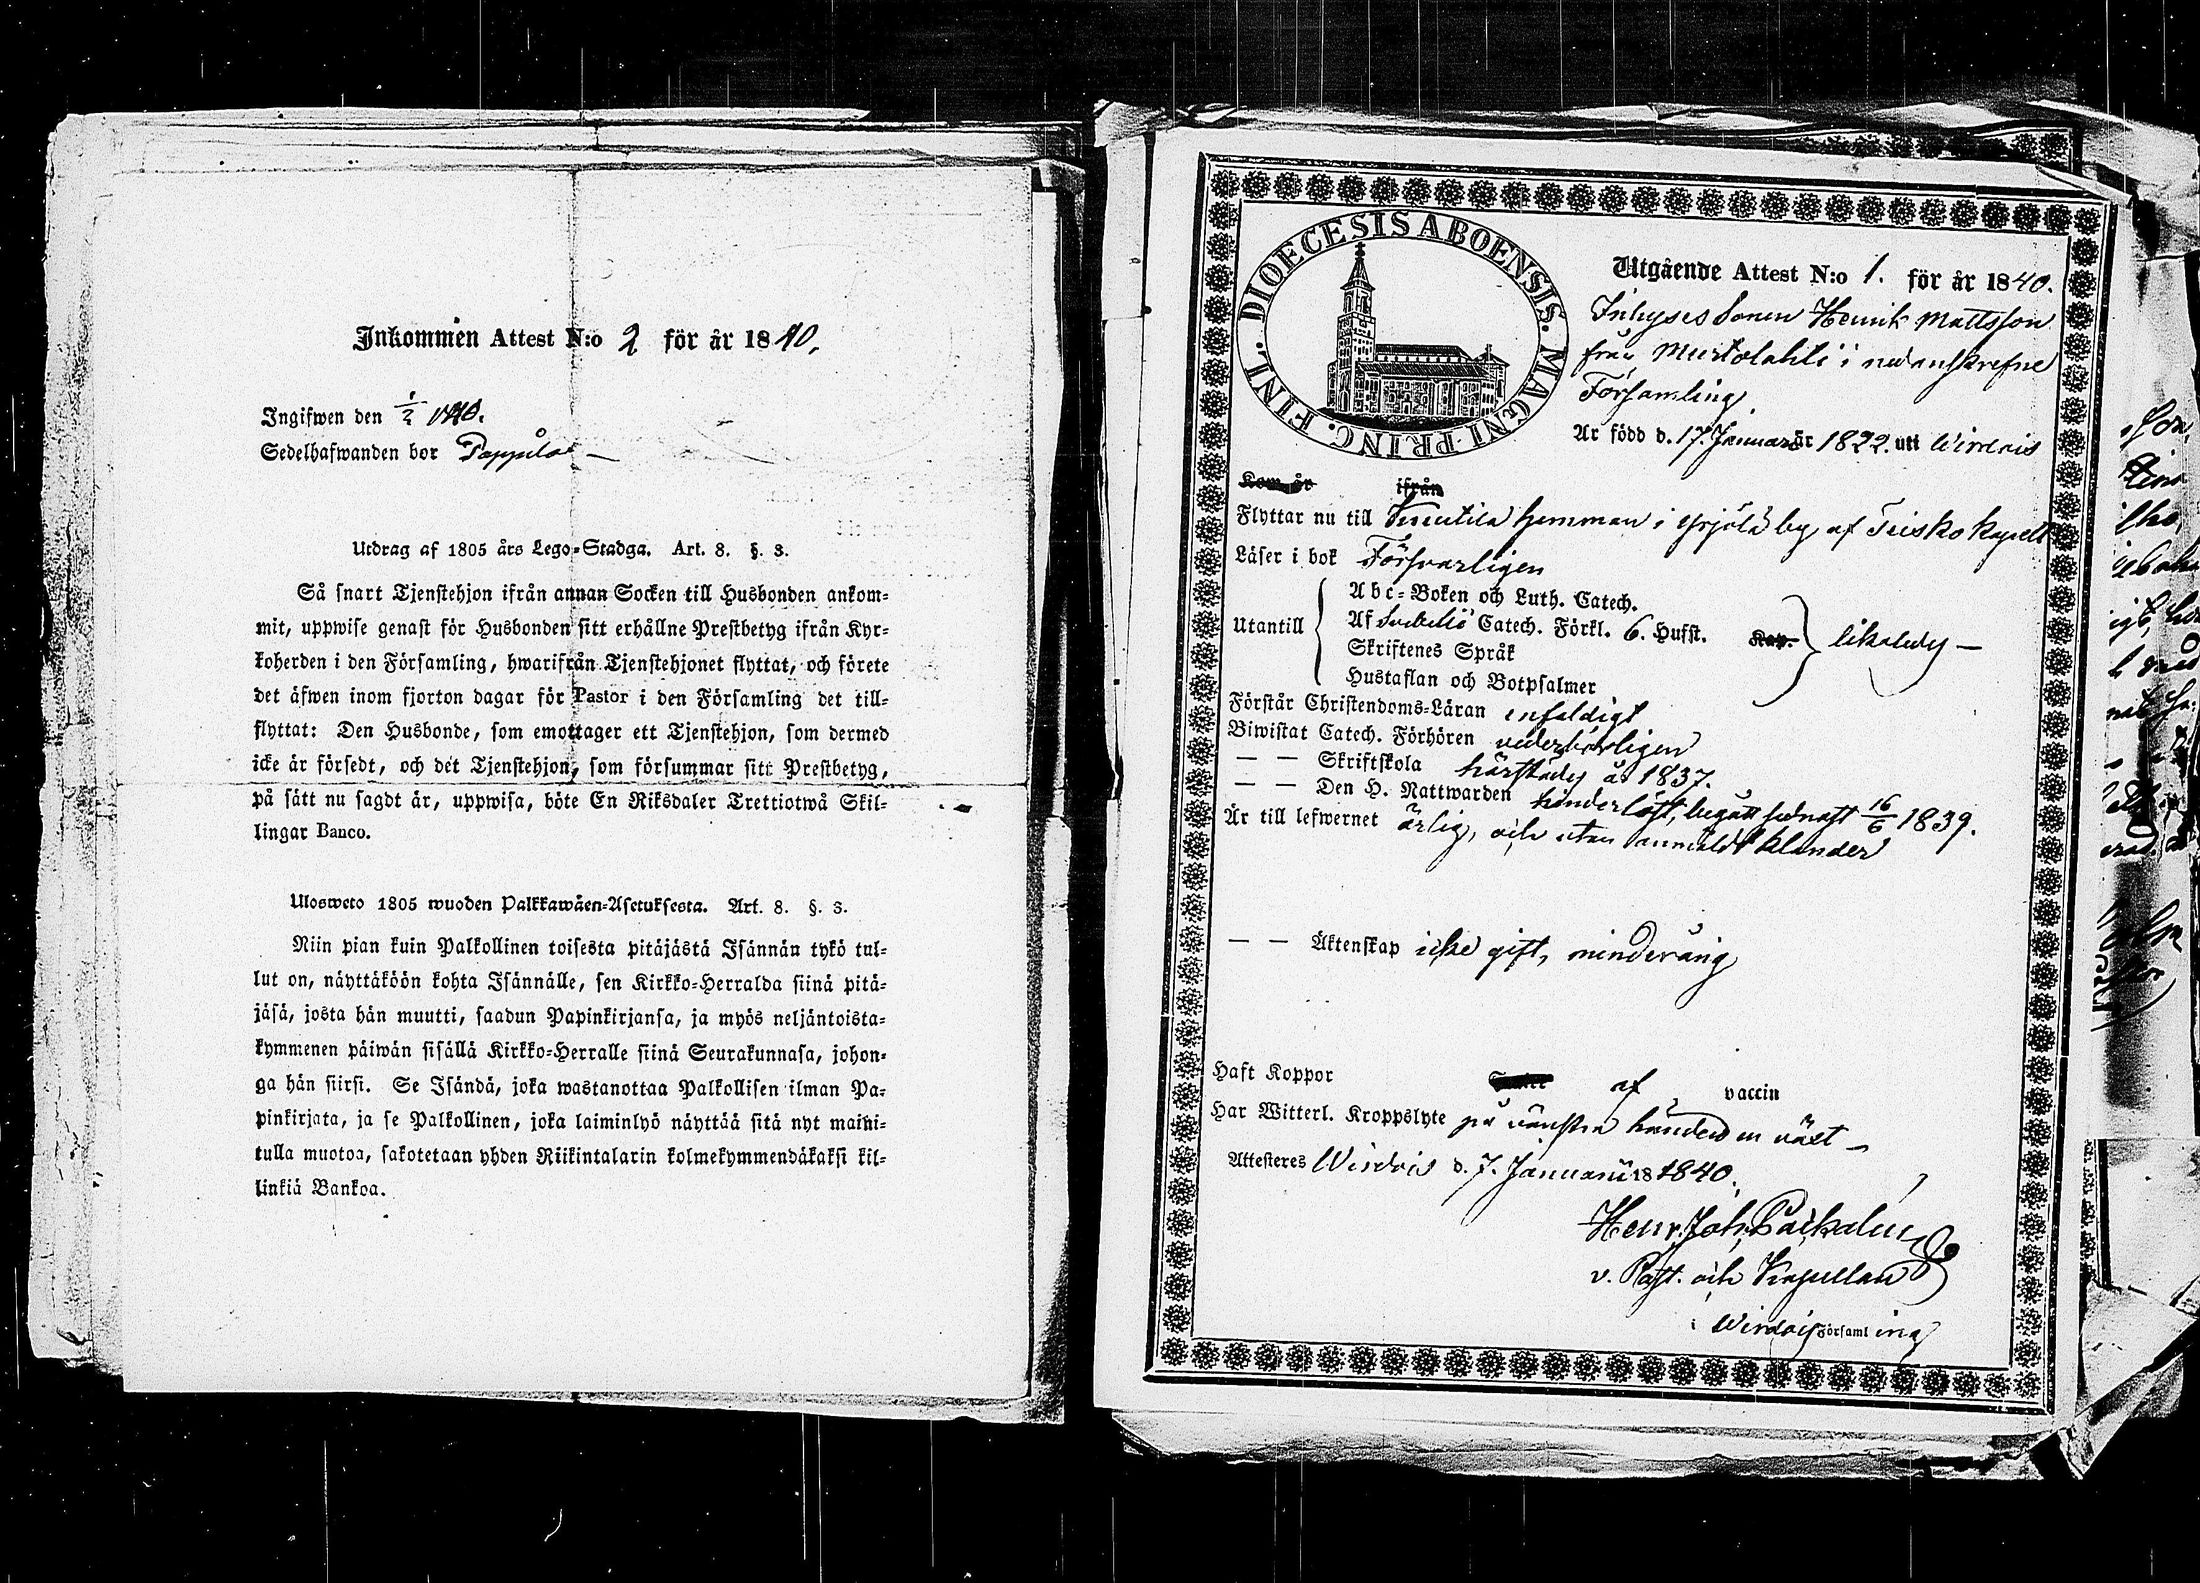 Inkommen Attest N:o 2 för år 1840.
Ingifwen den 1/2 1840.
Sedelhafwanden bor Poppula
Utdrag af 1805 års Lego-Stadga. Art. 8. §. 3.
Så snart Tjenstehjon ifrån annan Socken till Husbonden ankom-
mit, uppwise genast för Husbonden sitt erhållne Prestbetyg ifrån Kyr-
koherden i den Församling, hwarifrån Tjenstehjonet flyttat, och förete
det äfwen inom fjorton dagar för Pastor i den Församling det till-
flyttat: Den Husbonde, som emottager ett Tjenstehjon, som dermed
icke är försedt, och det Tjenstehjon, som försummar sitt Prestbetyg,
på sätt nu sagdt är, uppwisa, böte En Riksdaler Trettiotwå Skil-
lingar Banco.
Ulosweto 1805 wuoden Palkkawäen-Asetuksesta. Art. 8. §. 3.
Niin pian kuin Palkollinen toisesta pitäjästä Isännän tykö tul-
lut on, näyttäköön kohta Isännälle, sen Kirkko-Herralda siinä pitä-
jäsä, josta hän muutti, saadun Papinkirjansa, ja myös neljäntoista-
kymmenen päiwän sisällä Kirkko-Herralle siinä Seurakunnasa, johon-
ga hän siirsi. Se Isändä, joka wastanottaa Palkollisen ilman Pa-
pinkirjata, ja se Palkollinen, joka laiminlyö näyttää sitä nyt maini-
tulla muotoa, sakotetaan yhden Riikintalarin kolmekymmendäkaksi kil-
linkiä Bankoa.
DIOECESIS ABOENSIS. MAGNI. PRINC. FINL.
Utgående Attest N:o 1. för år 1840.
Inhyses Sonen Henrik Mattsson
från Murtolahti i nedanskrefne
Församling
Är född d. 17. Januar är 1822. uti Wirdois
Kom år ifrån
Flyttar nu till hemman i by af Teisko kapell
Läser i bok Försvarligen
Abc-Boken och Luth. Catech.
Utantill Af Svebilii Catech. Förkl. 6. Hufst. Kap. likaledes
Skriftenes Språk
Hustaflan och Botpsalmer
Förstår Christendoms-Läran enfaldigt
Biwistat Catech. Förhören vederbörligen
— — Skriftskola härstädes år 1837.
— — Den H. Nattwarden hinderlöst, begått sednast 16/6 1839.
Är till lefwernet ärlig, och utan anmäldt klander
— — Äktenskap icke gift, minderårig
Haft Koppor af vaccin
Har Witterl. Kroppslyte på vänstra handen en växt
Attesteres Wirdois d. 7. Januarii 18 1840.
Henr. Joh.
v. Past. och Kapellan
i Wirdois Församling